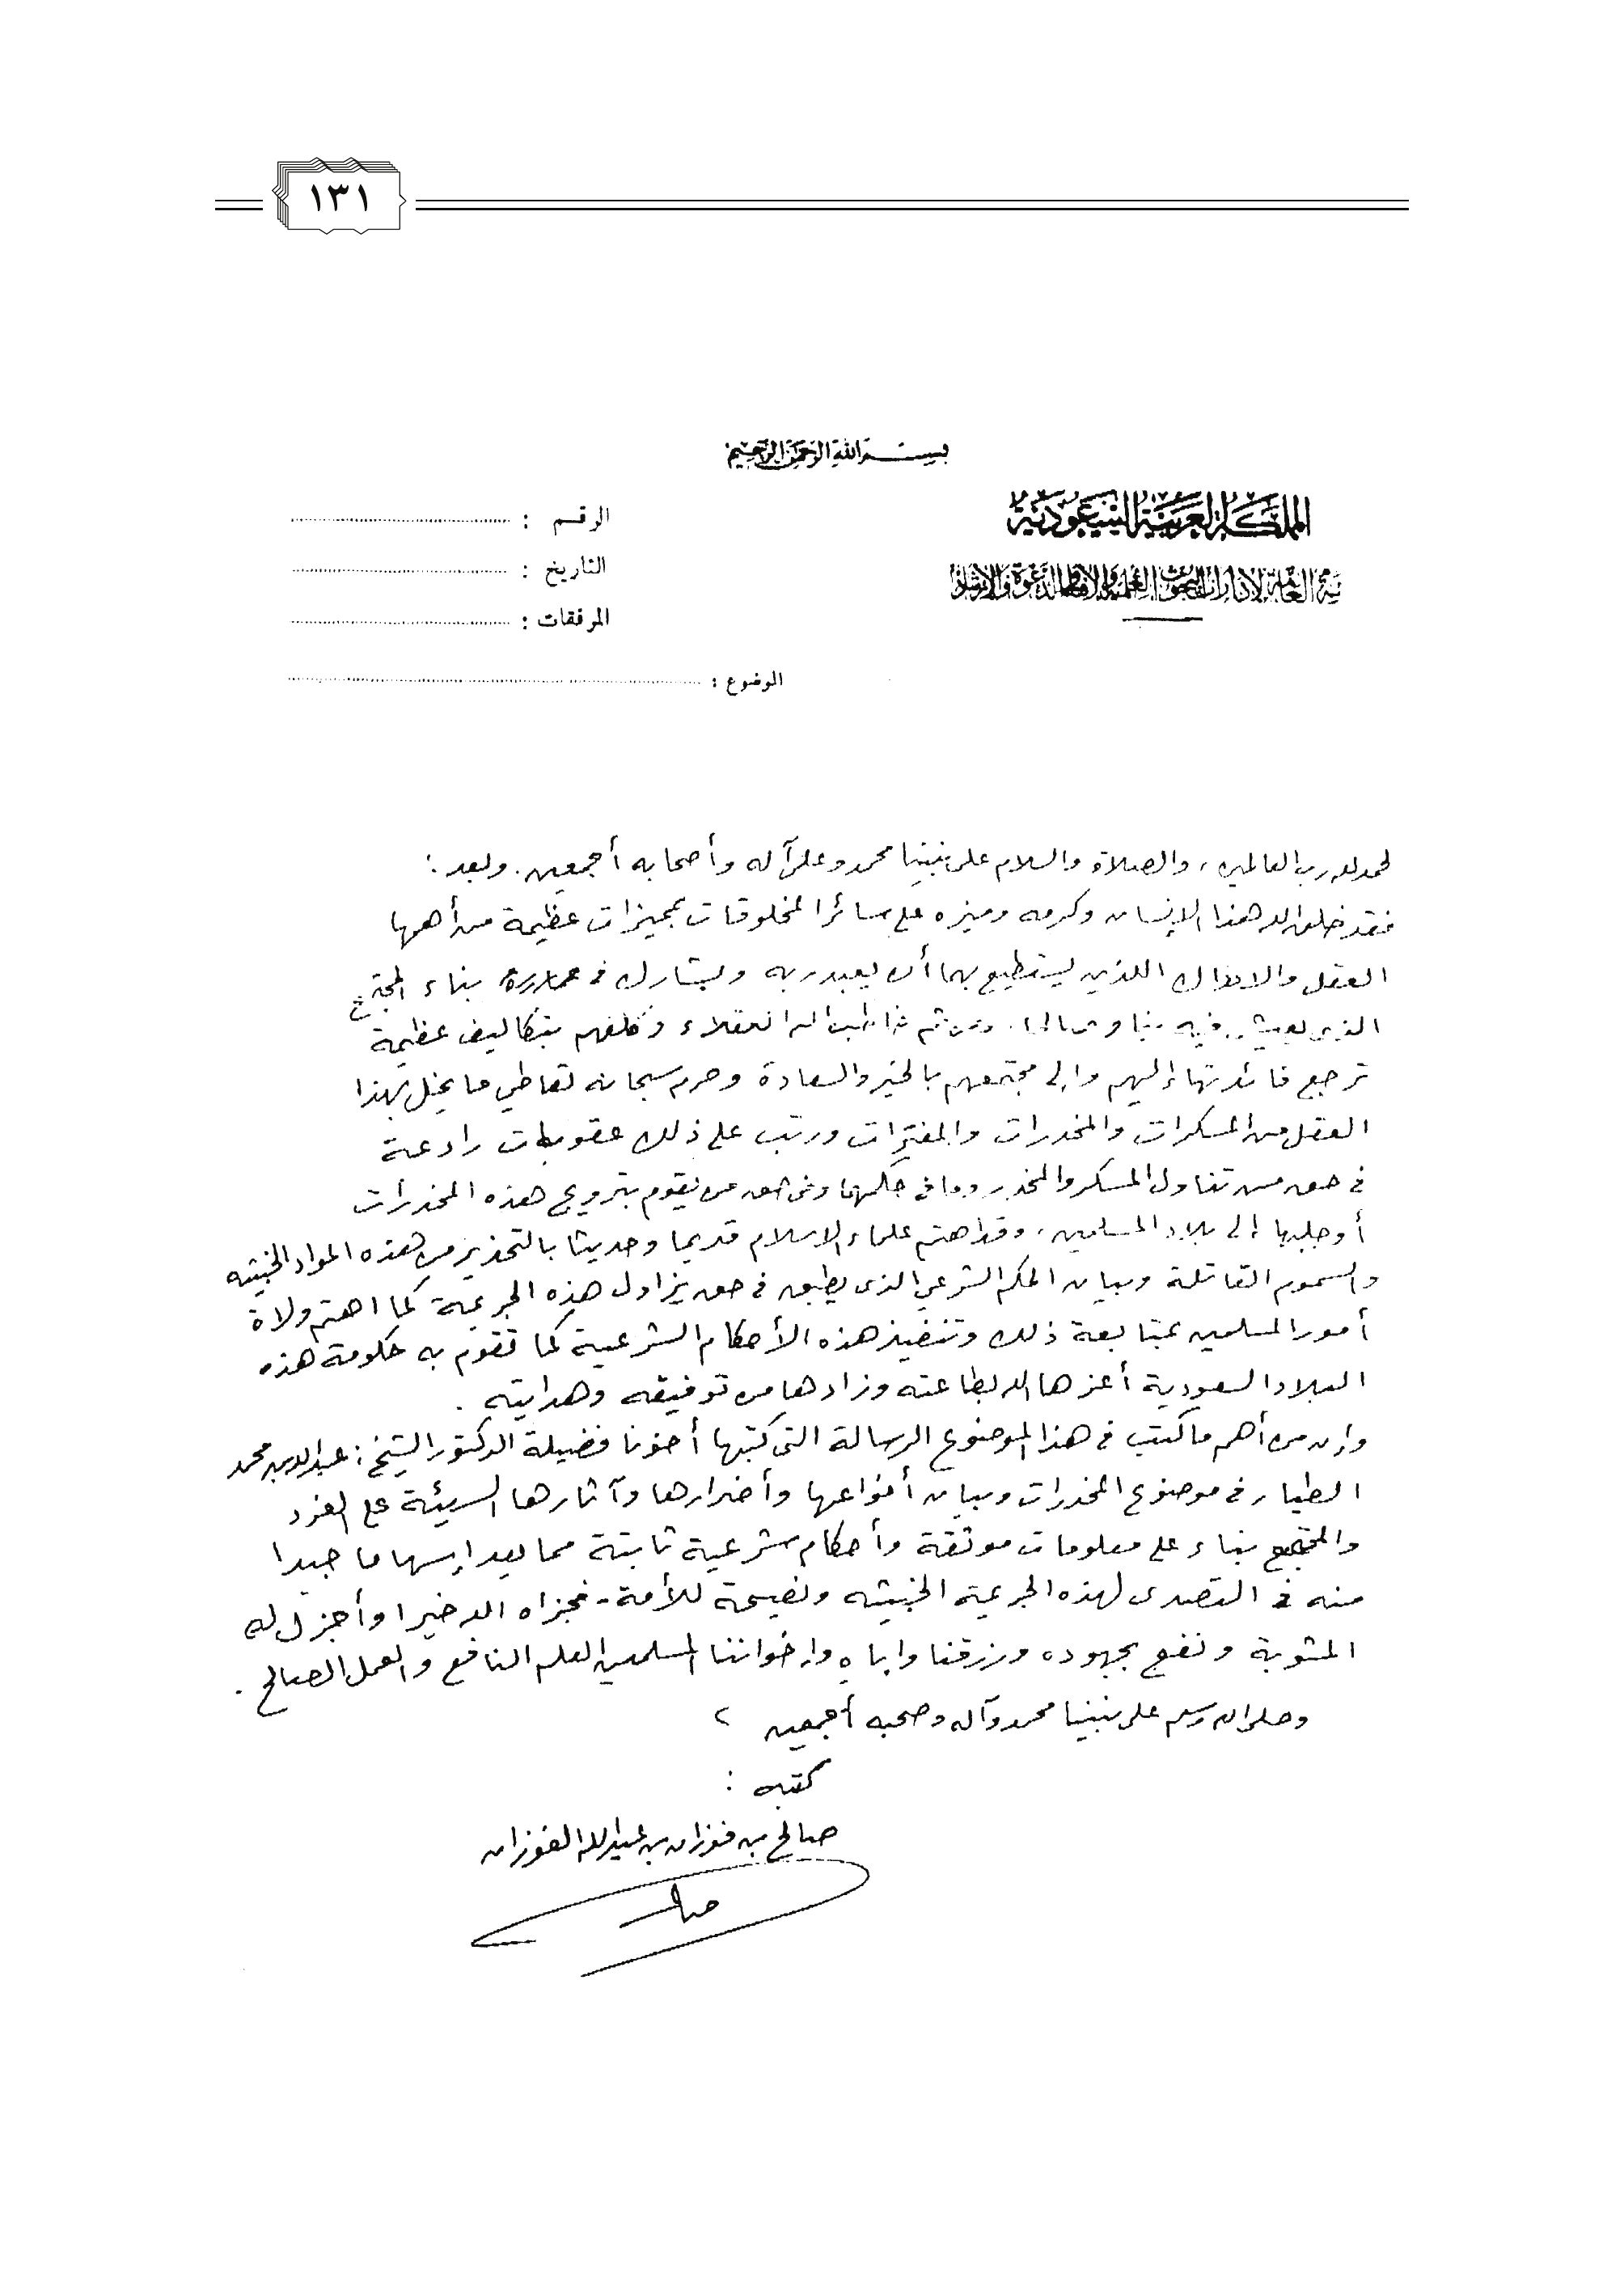 ١٣١
بسم الله الرحمن الرحيم
المملكة العربية السعودية
العامة لإدارات البحوث العلمية والإفتاء والدعوة والإرشاد
الرقم :
التاريخ :
المرفقات :
الوضوع :
لحمد لله رب العالمين، والصلاة والسلام على نبينا محمد وعلى آله وأصحابه أجمعين. وبعد :
فقد خلق الله هذا الإنسان وكرمه وميزه على سائر المخلوقات بمميزات عظيمة من أهمها
العقل والادراك اللذين يستطيع بهما أن يعبد ربه ويشارك في بناء المجتمع
الذي يعيش فيه ومن ثم خاطب الله العقلاء وكلفهم بتكاليف عظيمة
ترجع فائدتها إليهم وإلى مجتمعهم بالخير والسعادة وحرم سبحانه تعاطي ما يخل بهذا
العقل من المسكرات والمخدرات والمفترات ورتب على ذلك عقوبات رادعة
في حق من تناول المسكر والمخدر وما في حكمهما وفي حق من يقوم بترويج هذه المخدرات
أو جلبها إلى بلاد المسلمين، وقد اهتم علماء الاسلام قديما وحديثا بالتحذير من هذه المواد الخبيثه
والسموم القاتلة وبيان الحكم الشرعي الذي يطبق في حق يزاول هذه الجريمة كما اهتم ولاة
أمور المسلمين بمتابعة ذلك وتنفيذ هذه الأحكام الشرعية كما تقوم به حكومة هذه
البلاد السعودية أعزها الله بطاعته وزادها من توفيقه وهدايته .
وإن من أهم ما كتب في هذا الموضوع الرسالة التي كتبها أخونا فضيلة الدكتور الشيخ : عبدالله بن محمد
الطيار في موضوع المخدرات وبيان أنواعها وأضرارها وآثارها السيئة على الفرد
والمجتمع بناء على معلومات موثقة وأحكام شرعية ثابتة مما يعد إسهاما جيدا
منه في التصدى لهذه الجريمة الخبيثه ونصيحة للأمة - فجزاه الله خيرا وأجزل له
المثوبة ونفع بجهوده ورزقنا وإياه وإخواننا المسلمين العلم النافع والعمل الصالح .
وصلى الله وسلم على نبينا محمد وآله وصحبه أجمعين
كتبه :
صالح بن فوزان بن عبدالله الفوزان
صالح